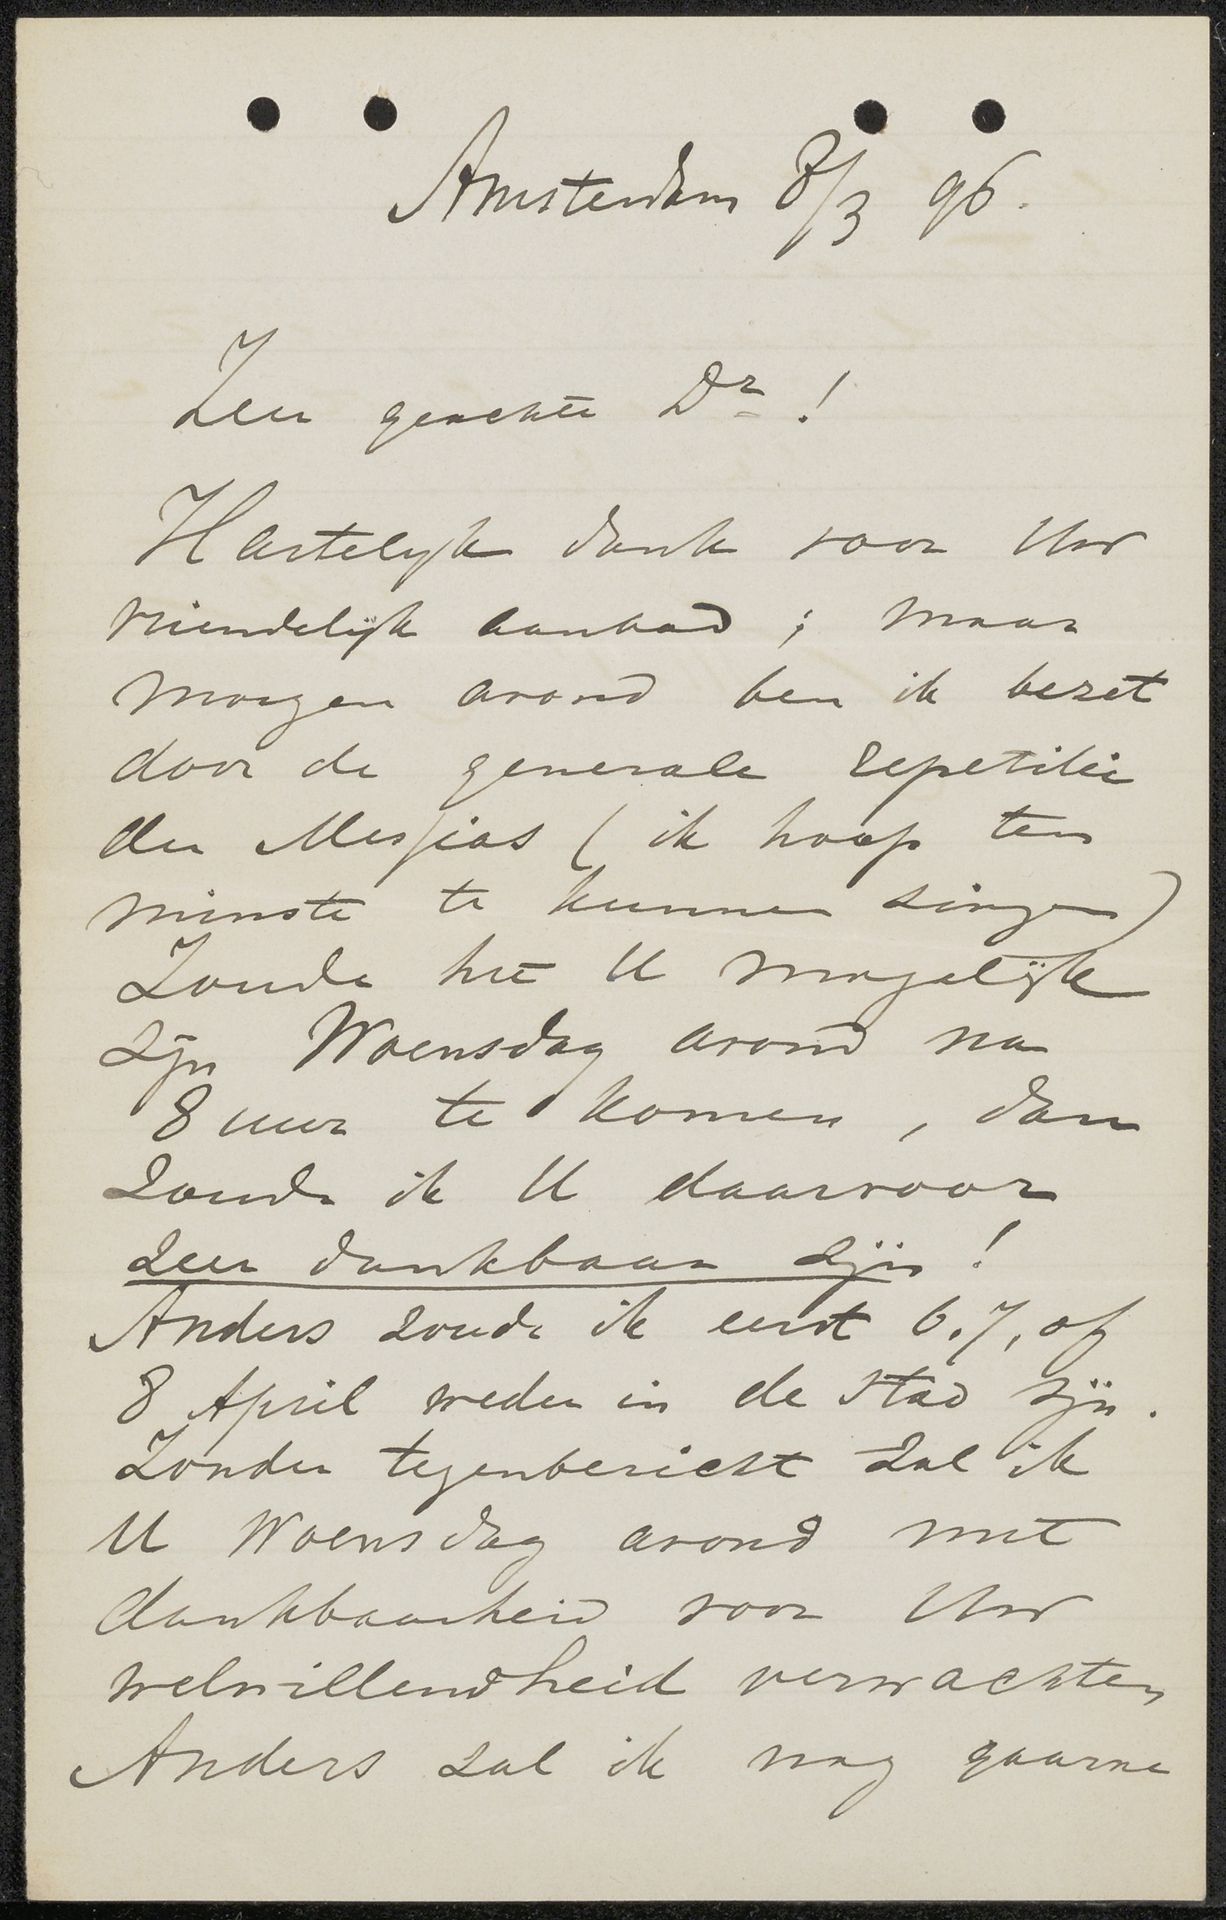 Amsterdam 8/3 96.
Zeer geachte Dr!
Hartelijk dank voor Uw
vriendelijk aanbod; maar
morgen avond ben ik bezet
door de generale repetitie
der Messias (ik hoop ten
minste te kunnen zingen)
Zoude het U mogelijk
zijn Woensdag avond na
8 uur te komen, dan
zoude ik U daarvoor
zeer dankbaar zijn!
Anders zoude ik eerst 6.7, of
8 April weder in de stad zijn.
Zonder tegenbericht zal ik
U Woensdag avond met
dankbaarheid voor Uw
welwillendheid verwachten
Anders zal ik nog gaarne